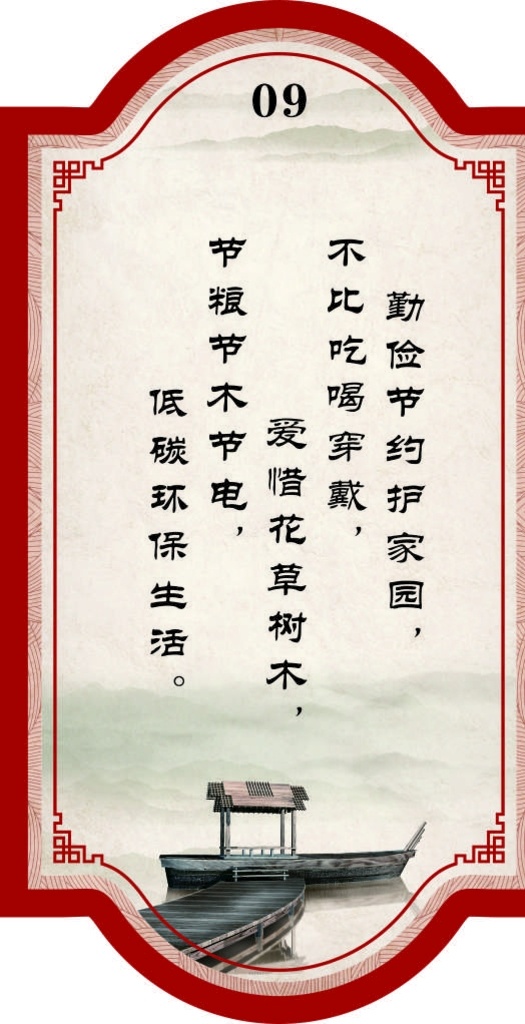 09
勤俭节约护家园，
不比吃喝穿戴，
爱惜花草树木，
节粮节木节电，
低碳环保生活。